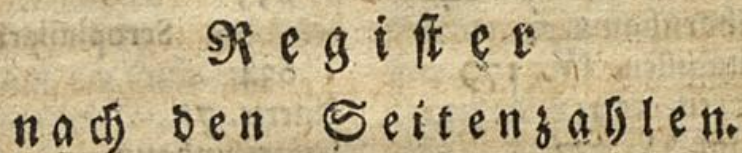 Regiſter
nach den Seitenzahlen.